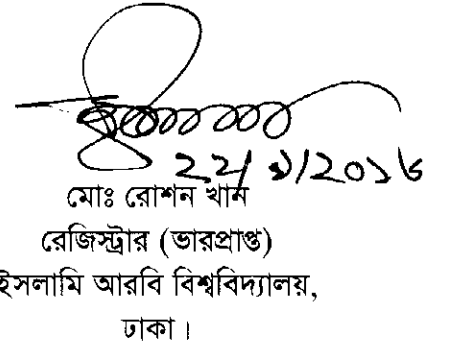 ২২/১/২০১৬
মোঃ রোশন খান
রেজিস্ট্রার (ভারপ্রাপ্ত)
ইসলামি আরবি বিশ্ববিদ্যালয়,
ঢাকা।